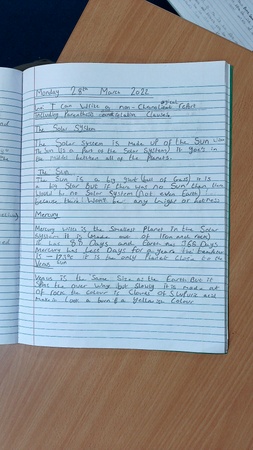 Monday 28th March 2022
L.I: I can write a non-chronological report
including Parenthesis and relative clauses
The Solar System
The Solar System is made up of the Sun
The Sun is a part of the Solar System. It goes in
the middle between all of the Planets.
The Sun
The Sun is a big giant ball of gas. It is
a big star but if there was no Sun then there
would be no Solar System (not even Earth)
because there won't be any light or hotness
Mercury
Mercury is the Smallest Planet in the Solar
System. It is made out of iron and rock
It has 88 Days and Earth has 366 Days
Mercury has Less Days for a year. The
is -173°c it is the only Planet close to the
Sun
Venus
Venus is the Same Size as the Earth But it
Spins the over way but slowly. It is made out
of rock the colour is Clouds of Sulfure acid
makes look a a yellowish colour